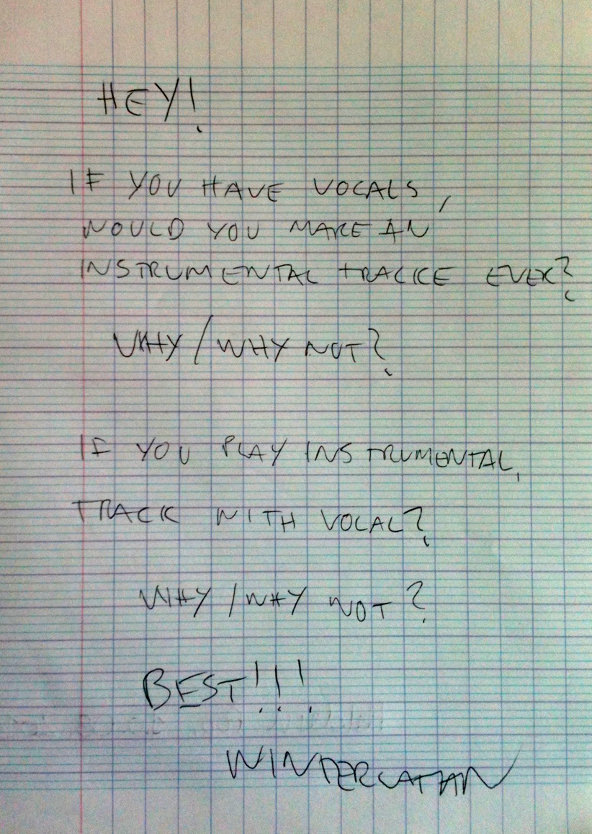 HEY!
IF YOU HAVE VOCALS,
WOULD YOU MAKE AN
INSTRUMENTAL TRACKE EVER?
WHY/WHY NOT?
IF YOU PLAY INSTRUMENTAL,
TRACK WITH VOCAL?
WHY/WHY NOT?
BEST!!!
WINTERGATAN